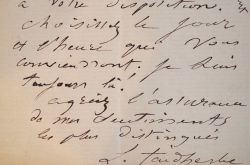 à votre disposition.
choisissez le jour
et l'heure qui vous
conviendront. je suis
toujours là !
agréez l'assurance
de mes sentiments
les plus distingués
L.